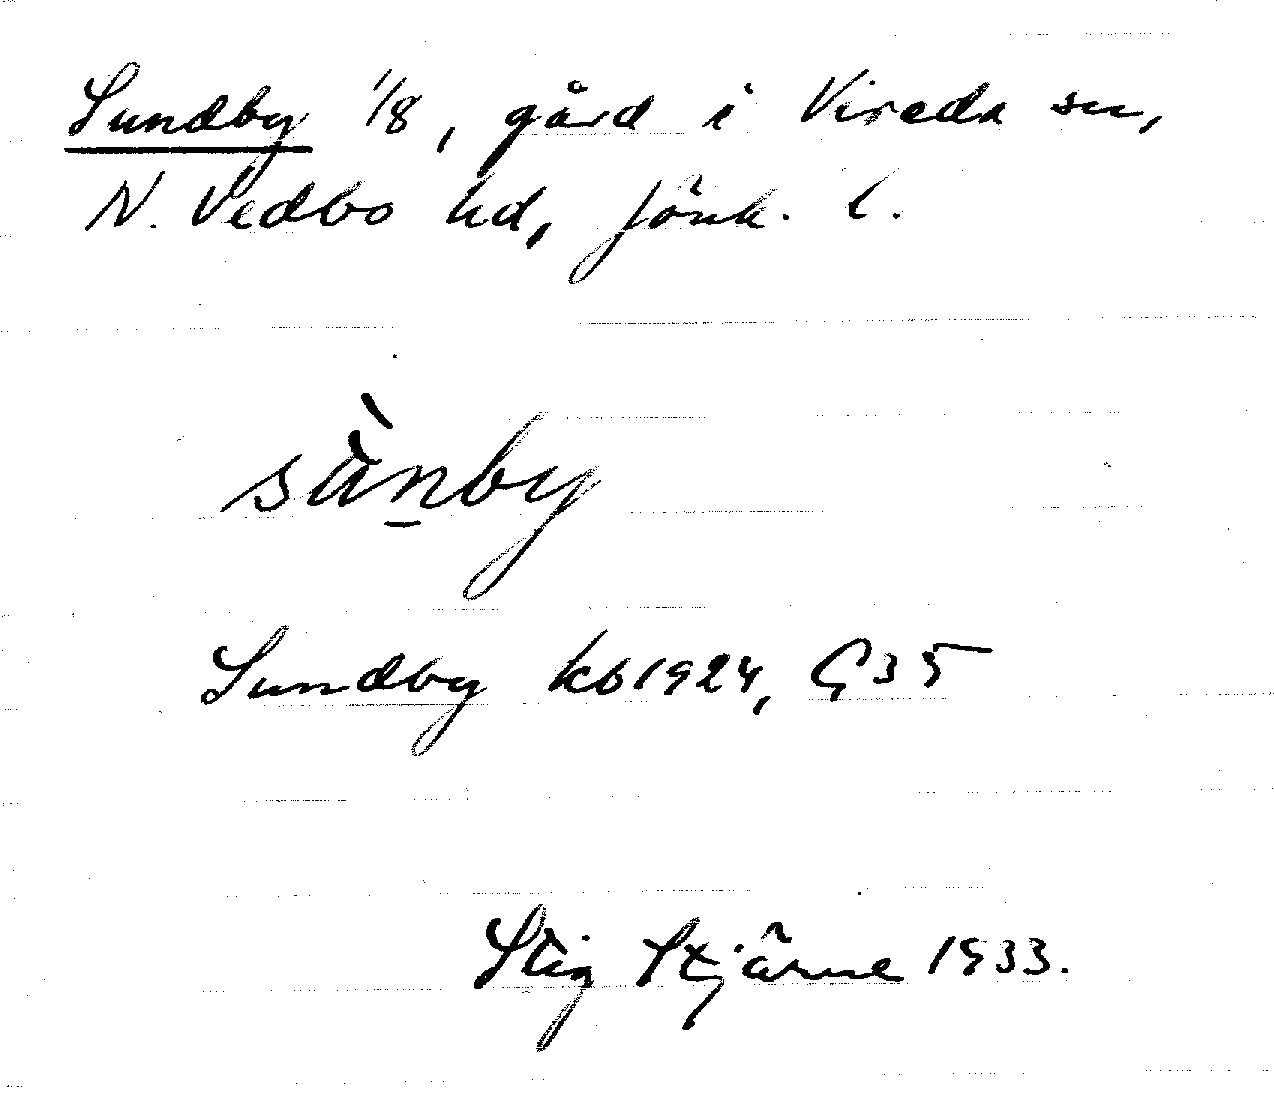 Sundby 1/8, gård i Vireda sn,
N. Vedbo hd, Jönk. l.
sànby
Sundby kb 1924, G 35
Stig Stjärne 1933.